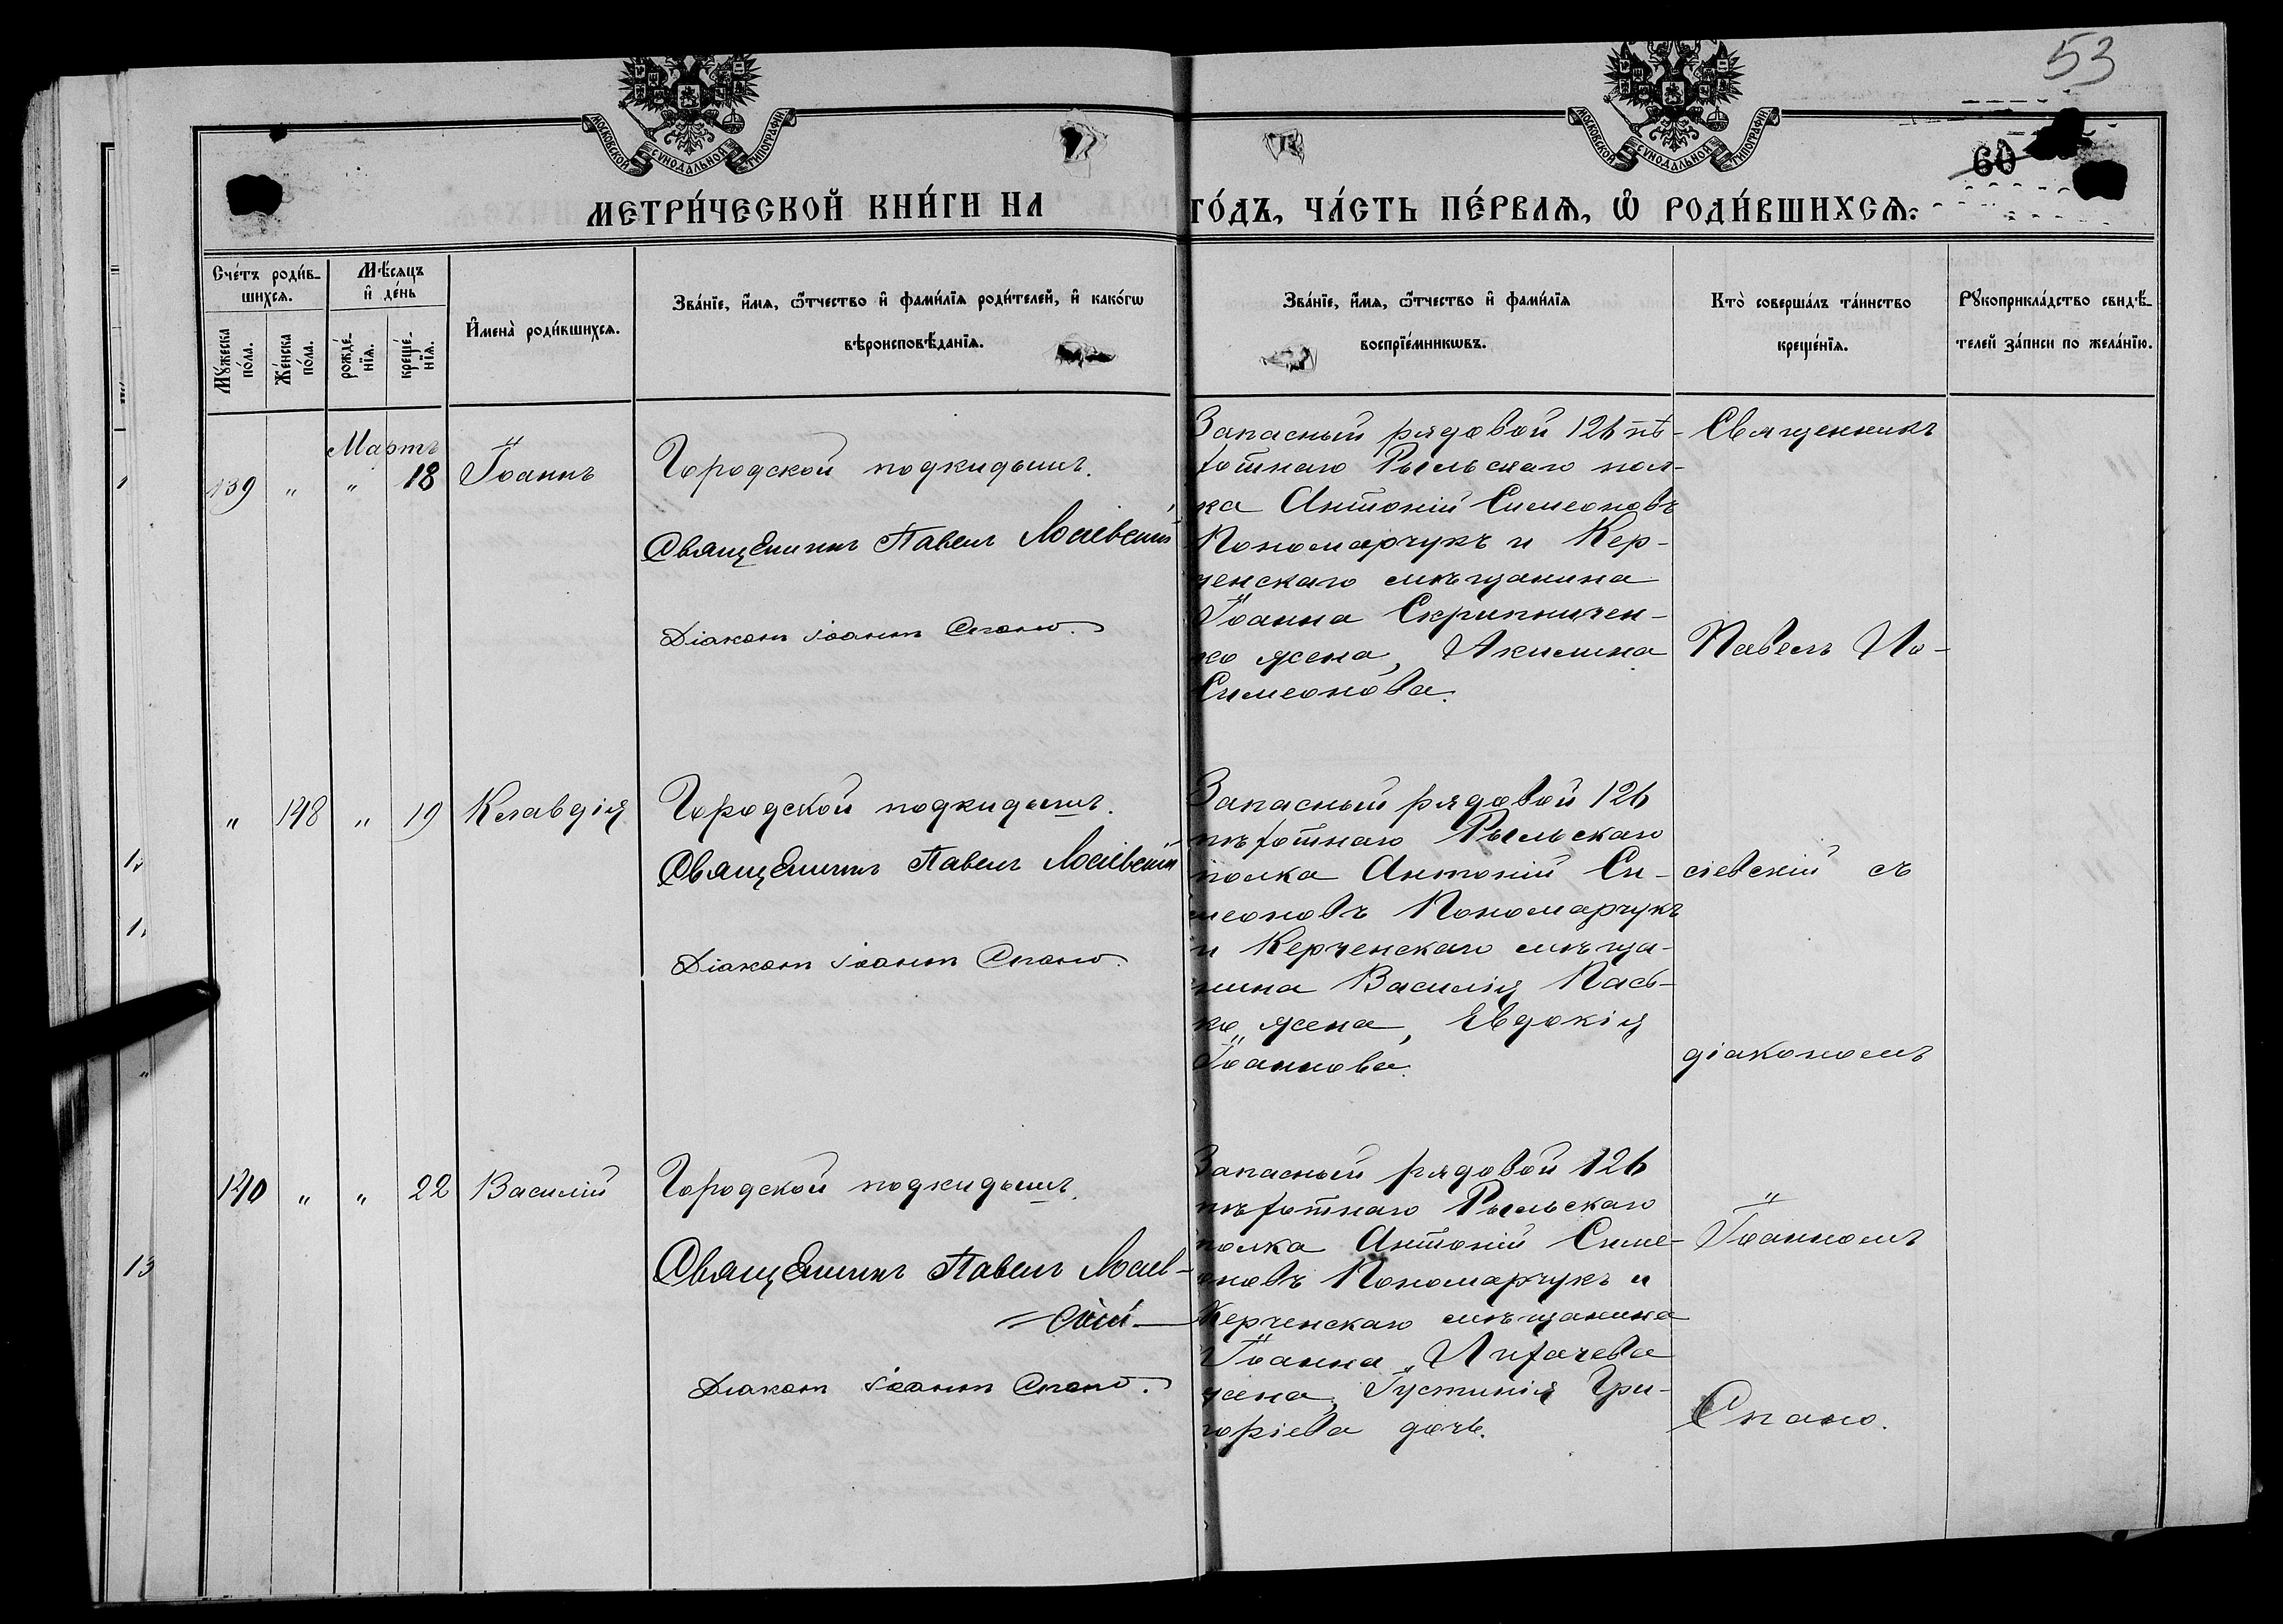 53
МОСКОВСКОЙ СѴНОДАЛЬНОЙ ТИПОГРАФІИ.
МОСКОВСКОЙ СѴНОДАЛЬНОЙ ТИПОГРАФІИ.
60
МЕТРИ́ЧЕСКОЙ КНИ́ГИ НА ГО́ДЪ, ЧА́СТЬ ПЕ́РВАѦ, Ѡ РОДИ́ВШИХСѦ.
Сче́тъ роди́в-
шихсѧ.
Мѣ́сѧцъ
и҆ де́нь
Мꙋ́жеска
по́ла.
Же́нска
по́ла.
рожде́-
нїѧ.
креще́-
нїѧ.
И҆мена̀ роди́вшихсѧ.
Зва́нїе, и҆́мѧ, ѻ҆́тчество и҆ фами́лїѧ роди́телей, и҆ како́гѡ
вѣроисповѣ́данїѧ.
Зва́нїе, и҆́мѧ, ѻ҆́тчество и҆ фами́лїѧ
воспрїе́мникѡвъ.
Кто̀ соверша́лъ та́инство
креще́нїѧ.
Рꙋкоприкла́дство свидѣ́-
телей за́писи по жела́нїю.
Мартъ
139 " " 18 Іоаннъ
Городской подкидышъ.
Священникъ Павелъ Лосіевскій
Діаконъ Іоаннъ Спано.
Запасный рядовой 126 пѣ-
хотнаго Рыльскаго пол-
ка Антоній Симеоновъ
Пономарчукъ и Кер-
ченскаго мѣщанина
Іоанна Скрипничен-
ко жена, Акилина
Симеонова.
Священникъ
Павелъ Ло-
" 148 " 19 Клавдія
Городской подкидышъ.
Священникъ Павелъ Лосіевскій
Діаконъ Іоаннъ Спано.
Запасный рядовой 126
пѣхотнаго Рыльскаго
полка Антоній Си-
меоновъ Пономарчукъ
и Керченскаго мѣща-
нина Василія Пась-
ко жена, Евдокія
Іоаннова.
сіевскій съ
діакономъ
140 " " 22 Василій
Городской подкидышъ.
Священникъ Павелъ Лосіев-
скій
Діаконъ Іоаннъ Спано.
Запасный рядовой 126
пѣхотнаго Рыльскаго
полка Антоній Симе-
оновъ Пономарчукъ и
Керченскаго мѣщанина
Іоанна Лихачева
жена, Іустинія Гри-
горіева дочь.
Іоанномъ
Спано.